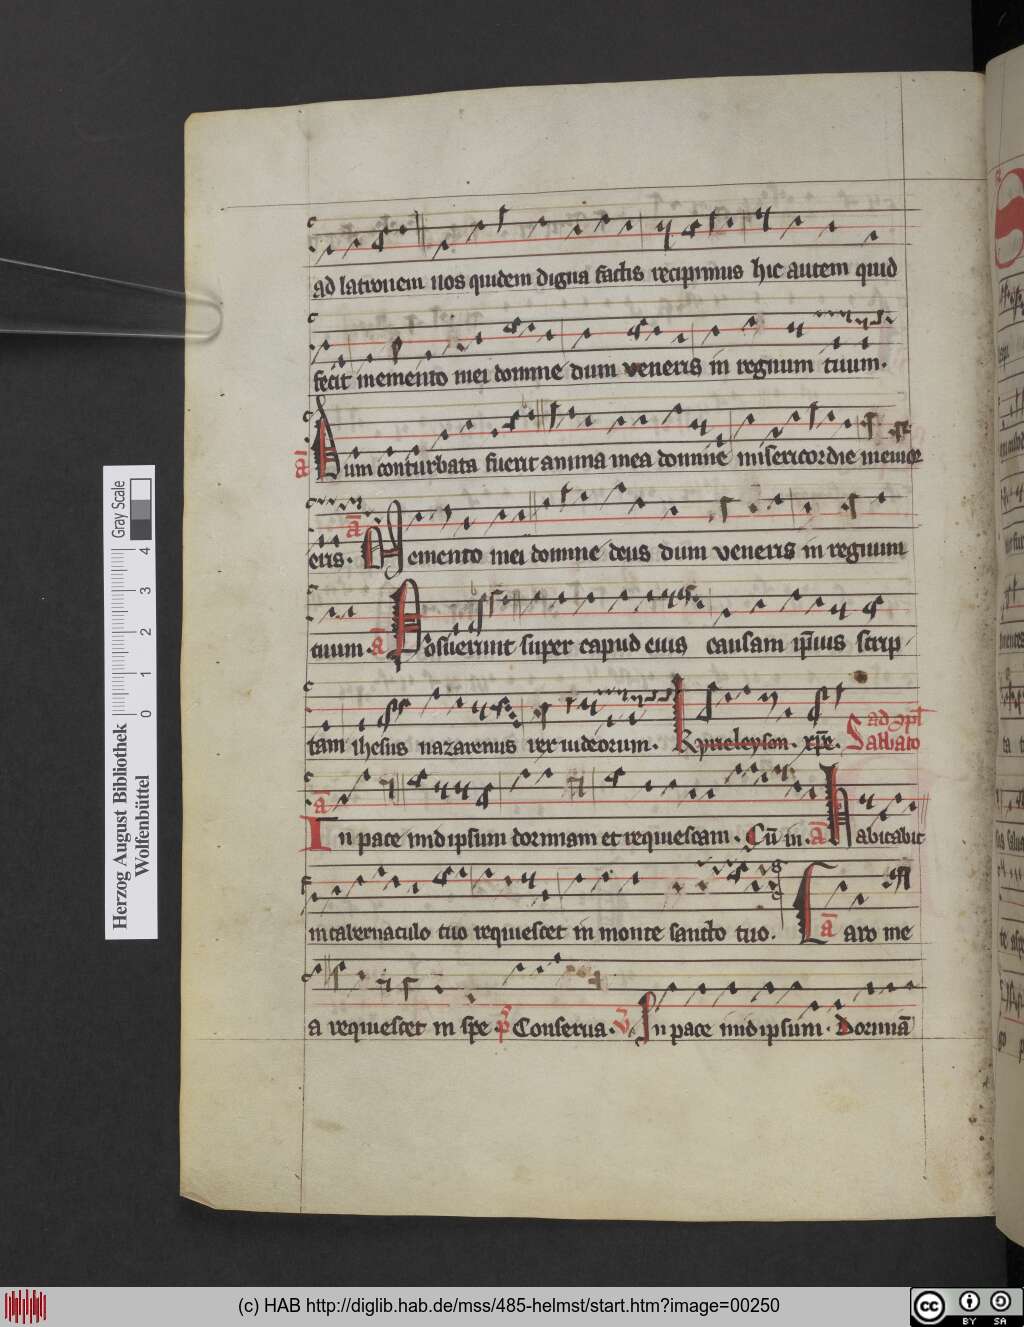 ad latronem nos quidem digna factis recipimus hic autem quid
fecit memento mei domine dum veneris in regnum tuum.
a Dum conturbata fuerit anima mea domine misericordie memor
eris. a Memento mei domine deus dum veneris in regnum
tuum. a Posuerunt super capud eius causam ip̄ius scrip
tam ihesus nazarenus rex iudeorum. Kyrieleyson. xp̄e. Sabbato ad
a In pace in id ipsum dormiam et requiescam. Cū in. a Habitabit
in tabernaculo tuo requiescet in monte sancto tuo. a Caro me
a requiescet in spe p̄ Conserua. v̄ In pace in id ipsum. Dormiā
Herzog August Bibliothek
Wolfenbüttel
0 1 2 3 4
Gray Scale
(c) HAB http://diglib.hab.de/mss/485-helmst/start.htm?image=00250
cc BY SA